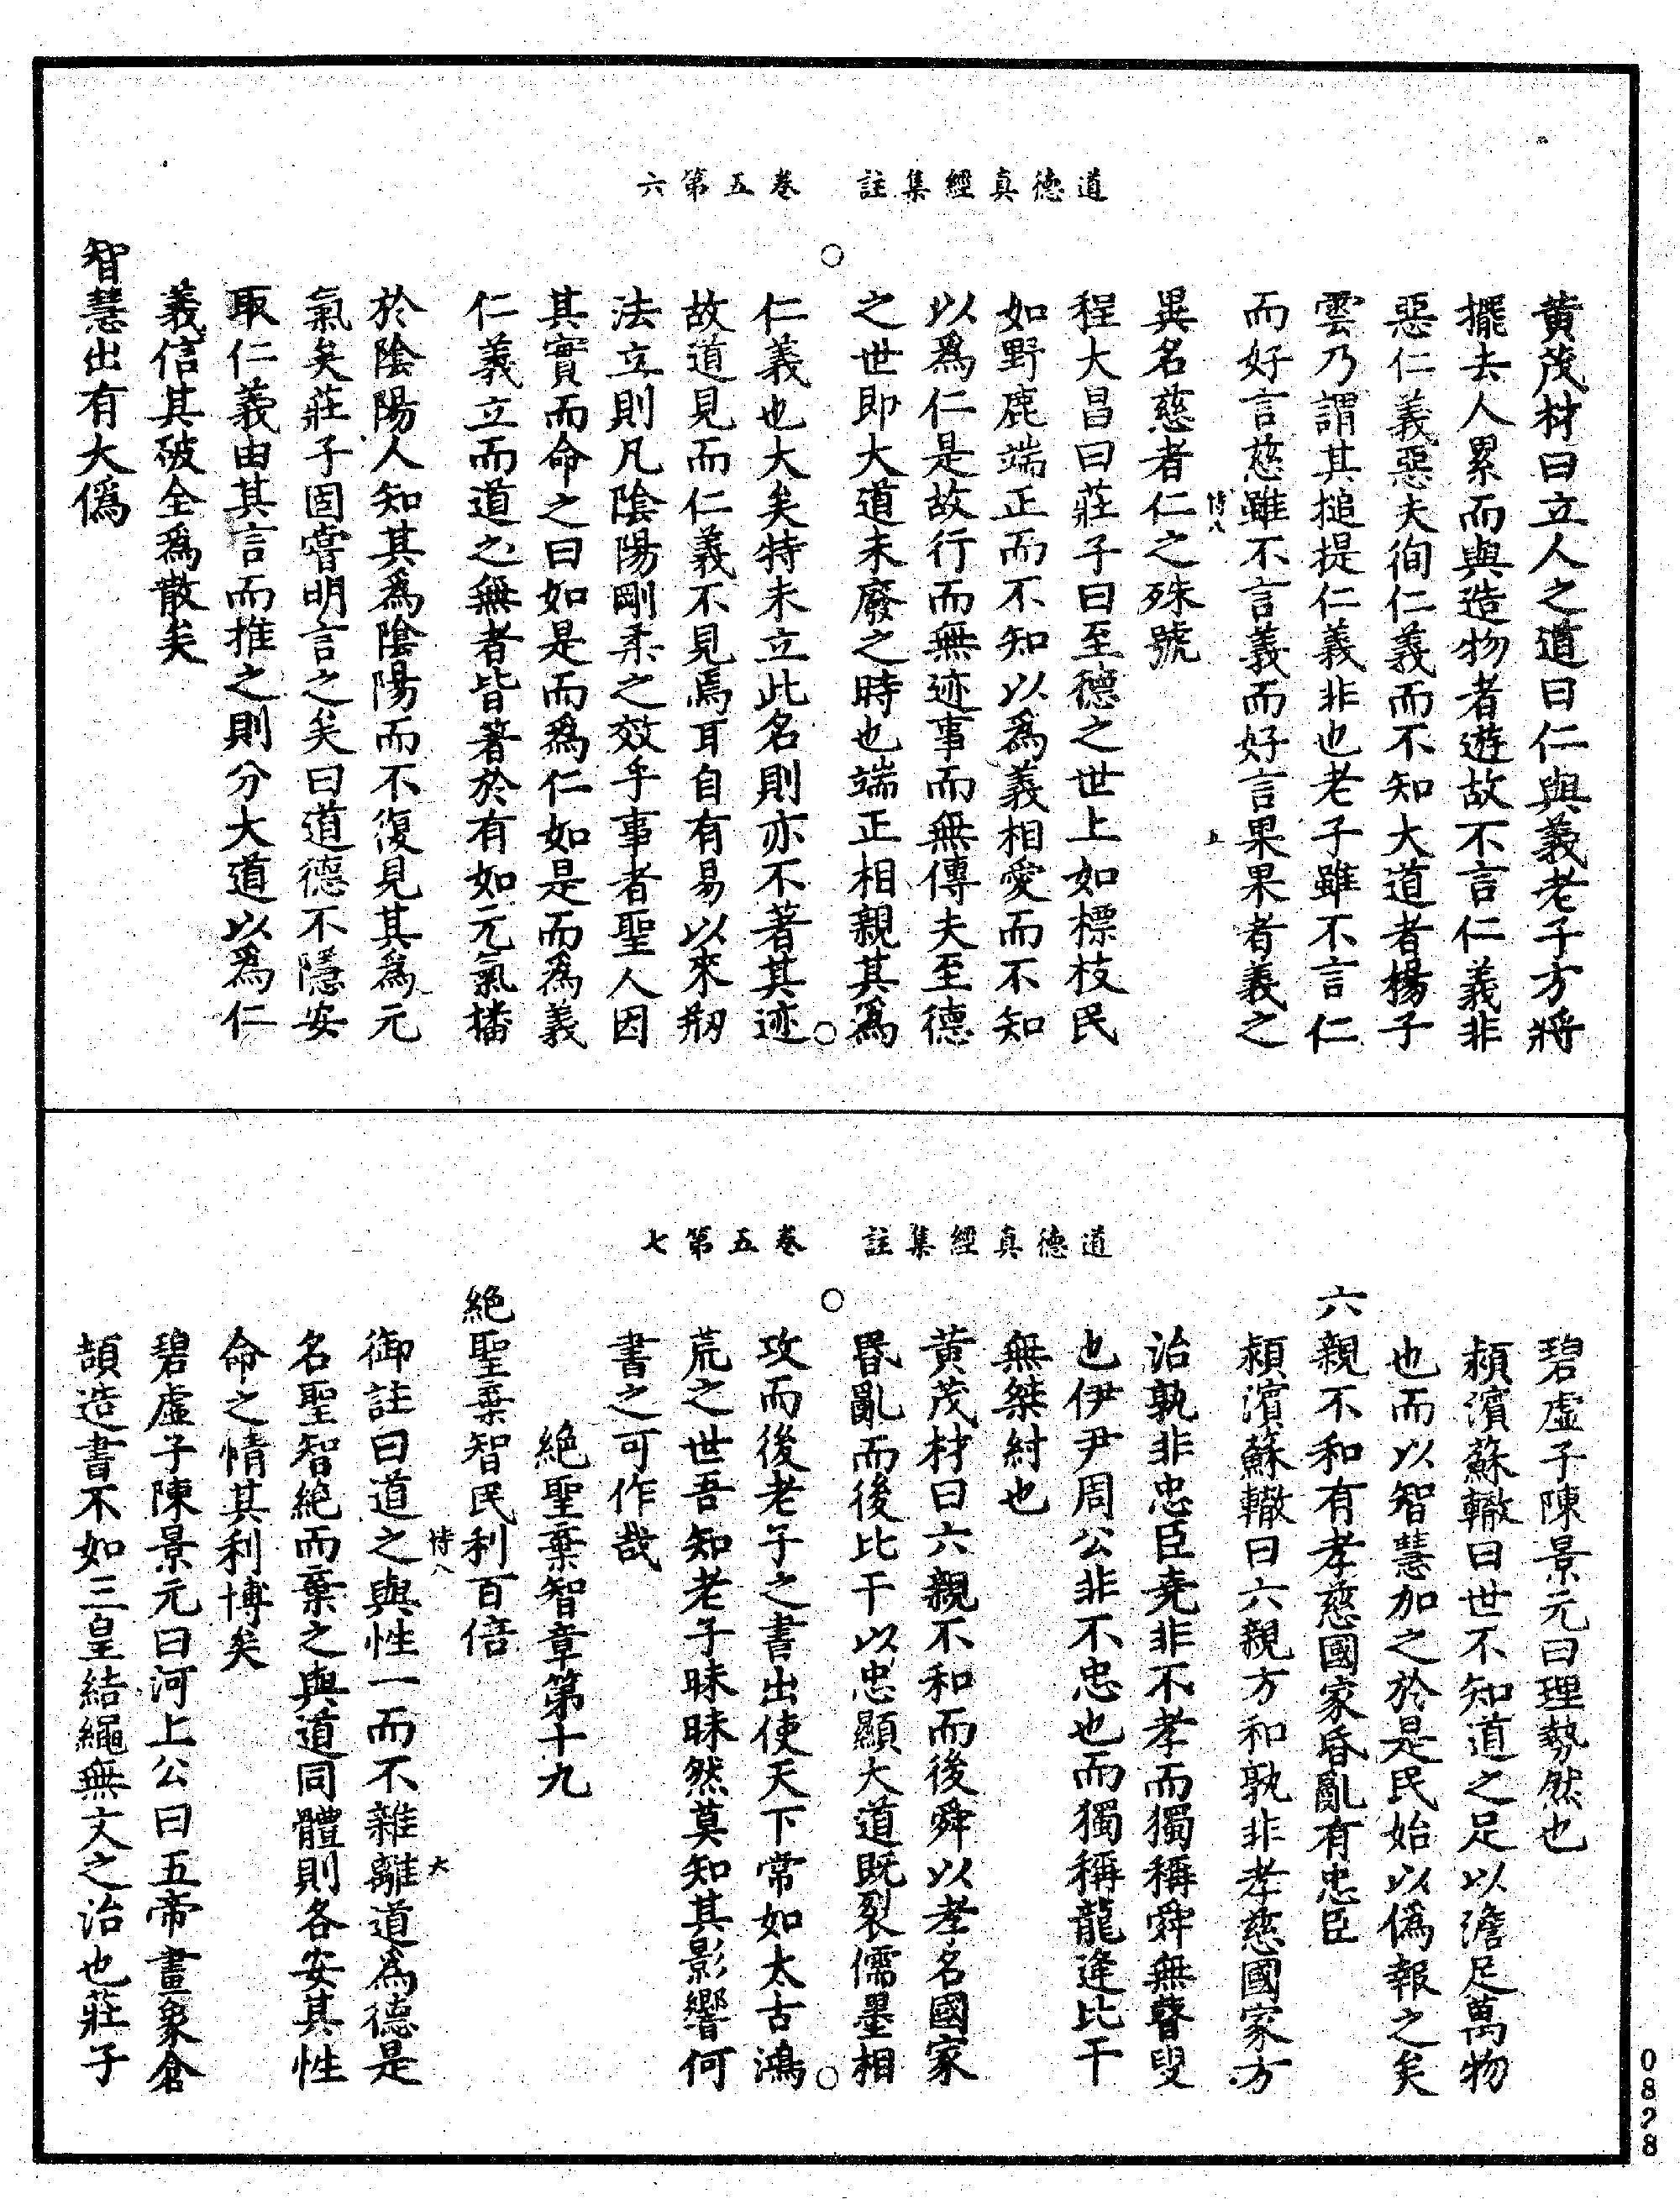 道德真經集註　卷五第六
黃茂材曰立人之道曰仁與義老子方將
擺去人累而與造物者遊故不言仁義非
惡仁義惡夫徇仁義而不知大道者楊子
雲乃謂其搥提仁義非也老子雖不言仁
而好言慈雖不言義而好言果果者義之
恃八
五
異名慈者仁之殊號
程大昌曰莊子曰至德之世上如標枝民
如野鹿端正而不知以爲義相愛而不知
以爲仁是故行而無迹事而無傳夫至德
之世即大道未廢之時也端正相親其爲
仁義也大矣特未立此名則亦不著其迹
故道見而仁義不見焉耳自有易以來剏
法立則凡陰陽剛柔之效乎事者聖人因
其實而命之曰如是而爲仁如是而爲義
仁義立而道之無者皆著於有如元氣播
於陰陽人知其爲陰陽而不復見其爲元
氣矣莊子固嘗明言之矣曰道德不隱安
取仁義由其言而推之則分大道以爲仁
義信其破全爲散矣
智慧出有大僞
道德真經集註　卷五第七
碧虛子陳景元曰理勢然也
潁濱蘇轍曰世不知道之足以澹足萬物
也而以智慧加之於是民始以僞報之矣
六親不和有孝慈國家昏亂有忠臣
潁濱蘇轍曰六親方和孰非孝慈國家方
治孰非忠臣堯非不孝而獨稱舜無瞽叟
也伊尹周公非不忠也而獨稱龍逢比干
無桀紂也
黃茂材曰六親不和而後舜以孝名國家
昬亂而後比干以忠顯大道既裂儒墨相
攻而後老子之書出使天下常如太古鴻
荒之世吾知老子昧昧然莫知其影響何
書之可作哉
絶聖棄智章第十九
絶聖棄智民利百倍
恃八
六
御註曰道之與性一而不雜離道爲德是
名聖智絶而棄之與道同體則各安其性
命之情其利博矣
碧虛子陳景元曰河上公曰五帝畫象倉
頡造書不如三皇結繩無文之治也莊子
0828